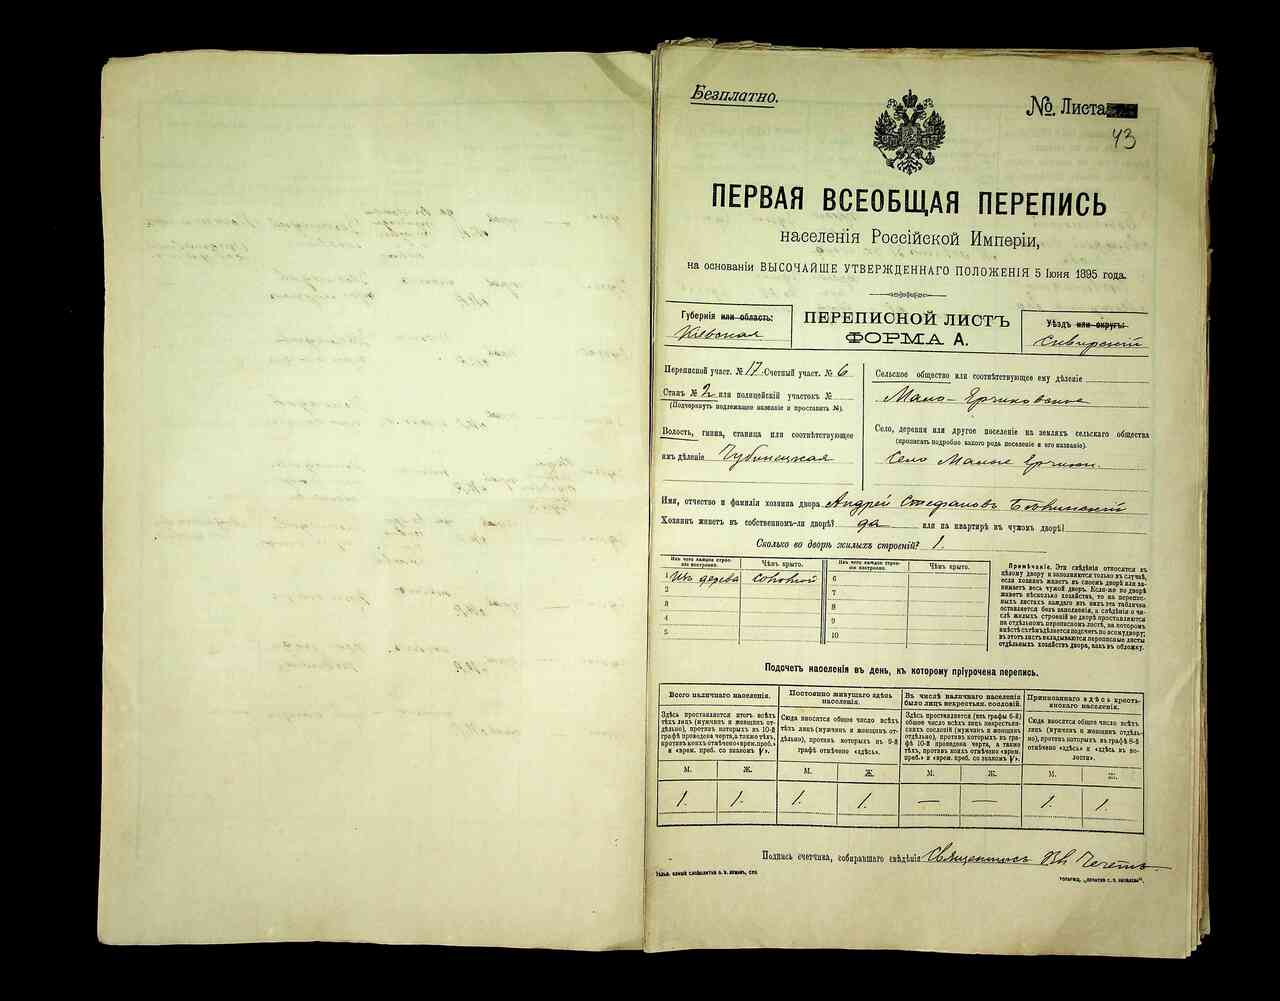 Безплатно.
№ Листа
43
ПЕРВАЯ ВСЕОБЩАЯ ПЕРЕПИСЬ
населенія Россійской Имперіи,
на основаніи ВЫСОЧАЙШЕ УТВЕРЖДЕННАГО ПОЛОЖЕНІЯ 5 Іюня 1895 года.
Губернія или область:
Кіевская
ПЕРЕПИСНОЙ ЛИСТЪ
ФОРМА А.
Уѣздъ или округъ:
Сквирскій
Переписной участ. № 17 Счетный участ. № 6
Станъ № 2 или полицейскій участокъ №
(Подчеркнуть подлежащее названіе и проставить №).
Волость, гмина, станица или соотвѣтствующее
имъ дѣленіе Чубинецкая
Сельское общество или соотвѣтствующее ему дѣленіе
Мало-Ерчиковское
Село, деревня или другое поселеніе на земляхъ сельскаго общества
(прописать подробно какого рода поселеніе и его названіе).
Село Малые Ерчики
Имя, отчество и фамилія хозяина двора Андрей Стефановъ
Хозяинъ живетъ въ собственномъ-ли дворѣ? да или на квартирѣ въ чужомъ дворѣ?
Сколько во дворѣ жилыхъ строеній? 1.
Изъ чего каждое строеніе построено. Чѣмъ крыто. Изъ чего каждое строеніе построено. Чѣмъ крыто.
1 Изъ дерева соломой 6
2 7
3 8
4 9
5 10
Примѣчаніе. Эти свѣдѣнія относятся къ
цѣлому двору и заполняются только въ случаѣ,
если хозяинъ живетъ въ своемъ дворѣ или занимаетъ
весь чужой дворъ. Если-же во дворѣ
живетъ нѣсколько хозяйствъ, то на переписныхъ
листахъ каждаго изъ нихъ эта табличка
оставляется безъ заполненія, а свѣдѣнія о числѣ
жилыхъ строеній во дворѣ проставляются
на отдѣльномъ переписномъ листѣ, на которомъ
вмѣстѣ съ тѣмъ дѣлается подсчетъ по всему двору;
въ этотъ листъ вкладываются переписные листы
отдѣльныхъ хозяйствъ двора, какъ въ обложку.
Подсчетъ населенія въ день, къ которому пріурочена перепись.
Всего наличнаго населенія.
Здѣсь проставляется итогъ всѣхъ
тѣхъ лицъ (мужчинъ и женщинъ отдѣльно),
противъ которыхъ въ 10-й
графѣ проведена черта, а также тѣхъ,
противъ коихъ отмѣчено «врем. преб.»
и «врем. преб. со знакомъ V».
Постоянно живущаго здѣсь
населенія.
Сюда вносится общее число всѣхъ
тѣхъ лицъ (мужчинъ и женщинъ отдѣльно),
противъ которыхъ въ 9-й
графѣ отмѣчено «здѣсь».
Въ числѣ наличнаго населенія
было лицъ некрестьян. сословій.
Здѣсь проставляется (изъ графы 6-й)
общее число всѣхъ лицъ некрестьянскихъ
сословій (мужчинъ и женщинъ
отдѣльно), противъ которыхъ въ графѣ
10-й проведена черта, а также
тѣхъ, противъ коихъ отмѣчено «врем.
преб.» и «врем. преб. со знакомъ V».
Приписаннаго здѣсь крестьянскаго
населенія.
Сюда вносится общее число всѣхъ
лицъ (мужчинъ и женщинъ отдѣльно),
противъ которыхъ въ графѣ 8-й
отмѣчено «здѣсь» и «здѣсь въ волости».
М. Ж. М. Ж. М. Ж. М. Ж.
1. 1. 1. 1. — — 1. 1.
Подпись счетчика, собиравшаго свѣдѣнія Священникъ